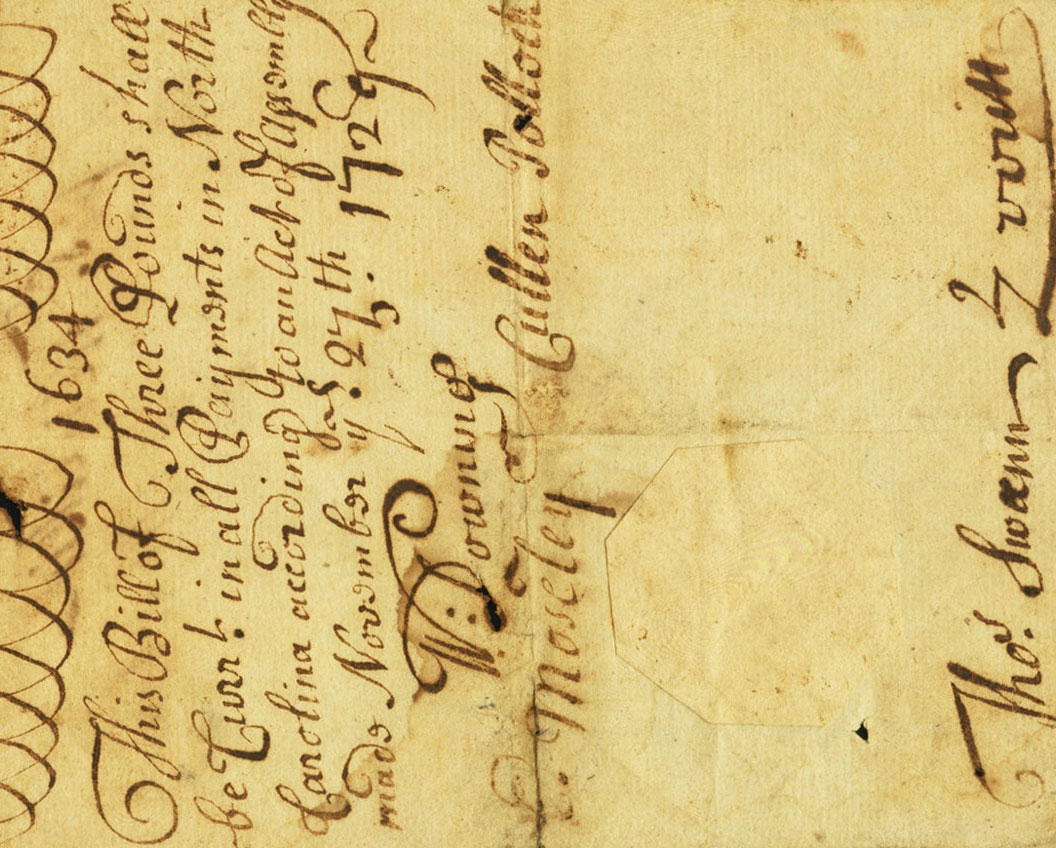 1634
This Bill of Three Pounds shall
be Curr.t in all Paijments in North
Carolina according to an Act of Assembly
made November ye. 27th. 1729
W: Downing Cullen Pollock
E: Moseley
Thos. Swann